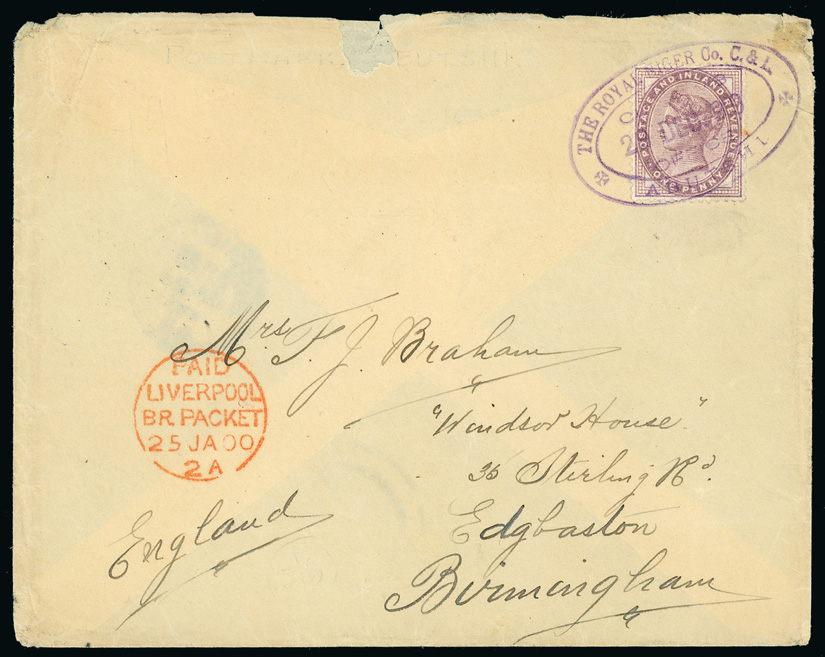 THE ROYAL NIGER Co. C. & L.
POSTAGE AND INLAND REVENUE
ONE PENNY
Mrs. F. J. Braham
"Windsor House"
36 Stirling Rd.
Edgbaston
Birmingham
England
PAID
LIVERPOOL
BR. PACKET
25 JA 00
2 A